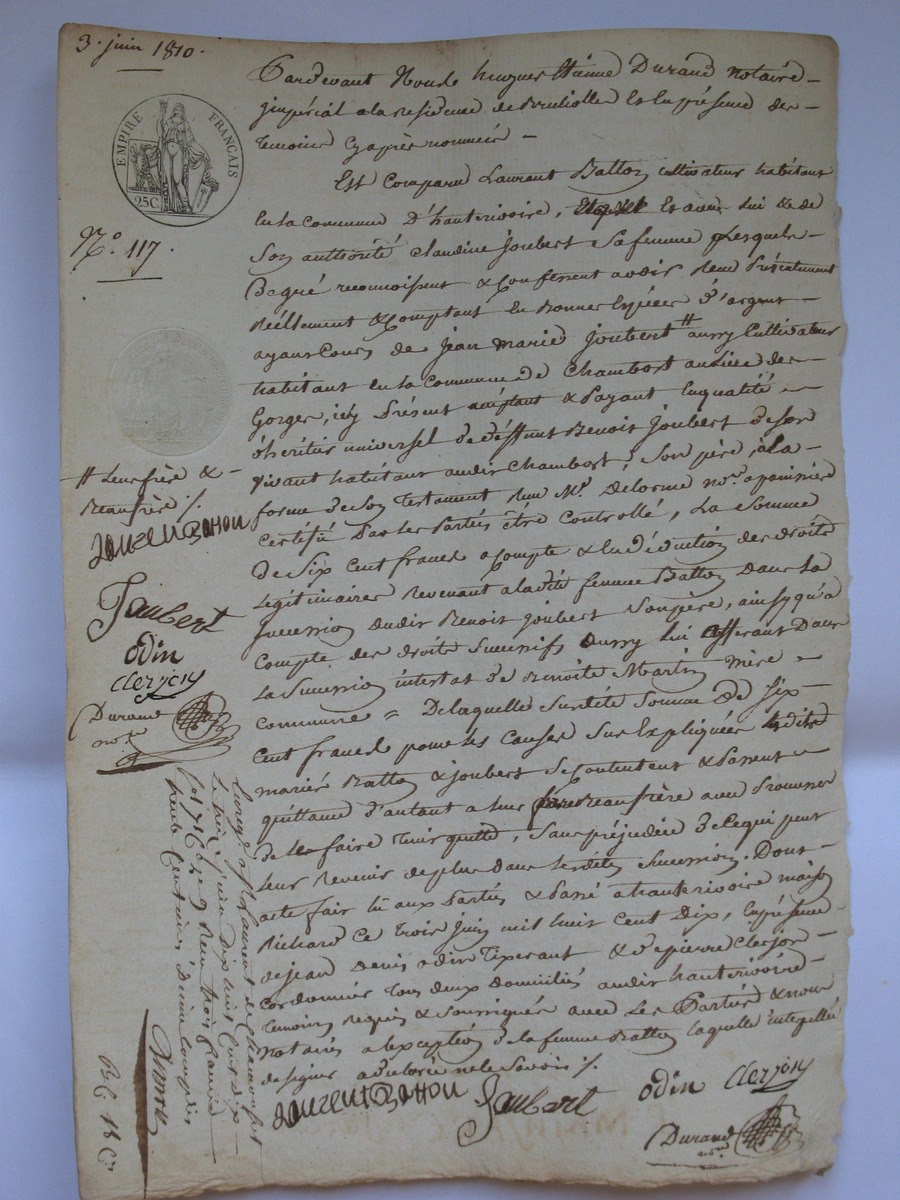 3. juin 1810.
EMPIRE FRANÇAIS
25C.
N.o 117.
Pardevant Nous hugues Etienne Durand notaire
jmpérial a la residence de Brullolle Et En présence des
temoins Cyaprès nommés
Est Comparu Laurent Batton Cultivateur habitant
En la commune D'hauterivoire, Et avec lui & de
Son authorité Claudine Joubert Sa femme Lesquels
De gré reconnoissent & Confessent avoir Reçu Présentement
Réellement & Comptant En Bonnes Espèces D'argent
ayans Cours de jean marie joubert # aussy Cultivateur
habitant en la Commune de Chambost audit lieu des
Gorges, icy Présent & Payant En qualité
d'héritier universel de déffunt Benoit Joubert de son
vivant habitant audit Chambost, Son père, a la
forme de Son Testament Reçu M.e Delorme no.re
certifié Par les Partiés être Controllé, La Somme
De Six Cent francs acompte & En Déduction des Droits
Legitimaires Revenant a ladite femme Batton Dans La
Succession dudit Benoit joubert Son père, ainsy qu'a
Compte des droits Successifs aussy lui afferant Dans
La Succession intestat de Benoite Martin mère
commune = De laquelle Susdite Somme De Six
Cent francs pour les Causes Sus Expliquées lesdits
mariés Batton & joubert Se Contentent & Passent
quittance D'autant a leur Beaufrère avec Promesse
de le faire tenir quitte, Sans préjudice De Ce qui peut
leur Revenir de plus Dans lesdites Successions. Dont
acte fait lû aux Partiés & Passé a hauterivoire maison
Richard Ce trois juin mil huit Cent Dix, En présence
de jean Denis odin Tixerant & de pierre Clerjon
Cordonnier tous deux domiciliés audit hauterivoire
temoins requis & Soussignés avec Les Partiés & nous
notaire a l'exception de la femme Batton laquelle interpellée
de signer a déclaré ne le Savoir /.
# Leur frère &
Beaufrère /.
Laurent Batton
Jaubert
odin
Clerjon
Durand
no.re
Enreg.é a St Laurent de Chamousset
le treize juin Dix huit Cent dix
Reçu trois francs
trente Centimes Dixime Compris
Laurent Batton
Jaubert
odin Clerjon
Durand
no.re